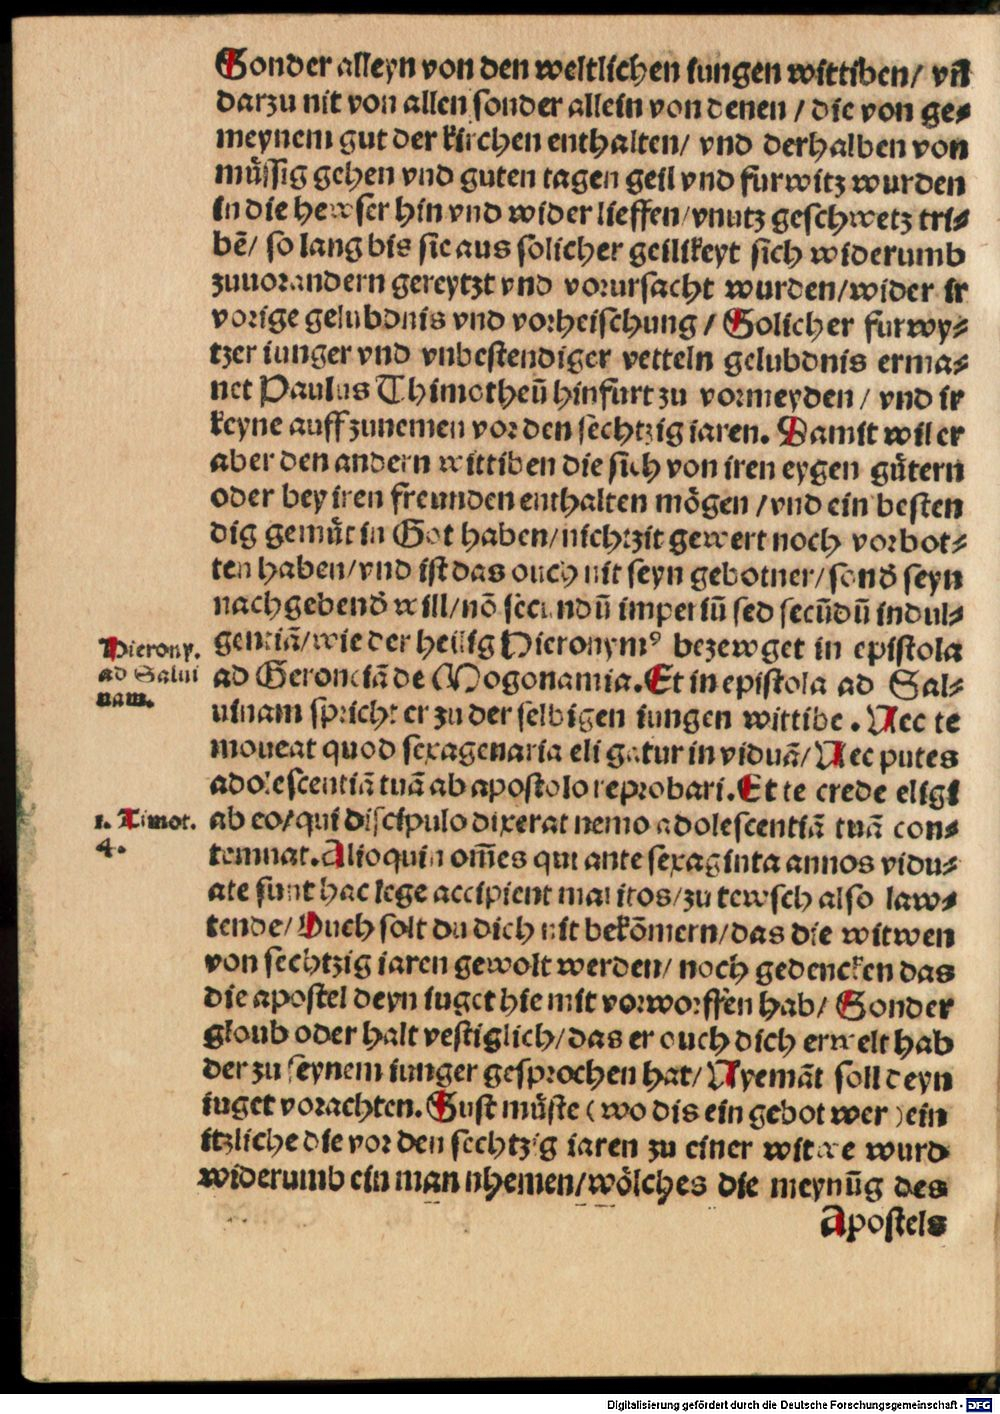 Sonder alleyn von den weltlichen iungen wittiben/ vn̄
darzu nit von allen sonder allein von denen / die von ge⸗
meynem gut der kirchen enthalten/ vnd derhalben von
müssig gehen vnd guten tagen geil vnd furwitz wurden
in die hewser hin vnd wider lieffen/vnutz geschwetz tri⸗
bē/ so lang bis sie aus solicher geilikeyt sich widerumb
zuuorandern gereytzt vnd vorursacht wurden/wider ir
vorige gelubdnis vnd vorheischung / Solicher furwy⸗
tzer iunger vnd vnbestendiger vetteln gelubdnis erma⸗
net Paulus Thimotheū hinfurt zu vormeyden / vnd ir
keyne auff zunemen vor den sechtzig iaren. Damit wil er
aber den andern wittiben die sich von iren eygen gütern
oder bey iren freunden enthalten mögen /vnd ein besten
dig gemüt in Got haben/nichtzit gewert noch vorbot⸗
ten haben/vnd ist das ouch nit seyn gebotner/sond̄ seyn
nachgebend̄ will/nō secundū imperiū sed secūdū indul⸗
gentiā/wie der heilig Hieronymꝰ bezewget in epistola
ad Gerontiā de Mogonamia. Et in epistola ad Sal⸗
uinam spricht er zu der selbigen iungen wittibe . Nec te
moueat quod sexagenaria eligatur in viduā/ Nec putes
adolescentiā tuā ab apostolo reprobari. Et te crede eligi
ab eo/qui discipulo dixerat nemo adolescentiā tuā con⸗
temnat. Alioquin om̄es qui ante sexaginta annos vidu⸗
ate sunt hac lege accipient maritos/zu tewsch also law⸗
tende/ Ouch solt du dich nit bekōmern/das die witwen
von sechtzig iaren gewolt werden/ noch gedencken das
die apostel deyn iuget hie mit vorworffen hab/ Sonder
gloub oder halt vestiglich/das er ouch dich erwelt hab
der zu seynem iunger gesprochen hat/ Nyemāt soll deyn
iuget vorachten. Sust müste (wo dis ein gebot wer )ein
itzliche die vor den sechtzig iaren zu einer witwe wurd
widerumb ein man nhemen/wölches die meynūg des
Apostels
Hierony.
ad Salui
nam.
1. Timot.
4.
Digitalisierung gefördert durch die Deutsche Forschungsgemeinschaft - DFG